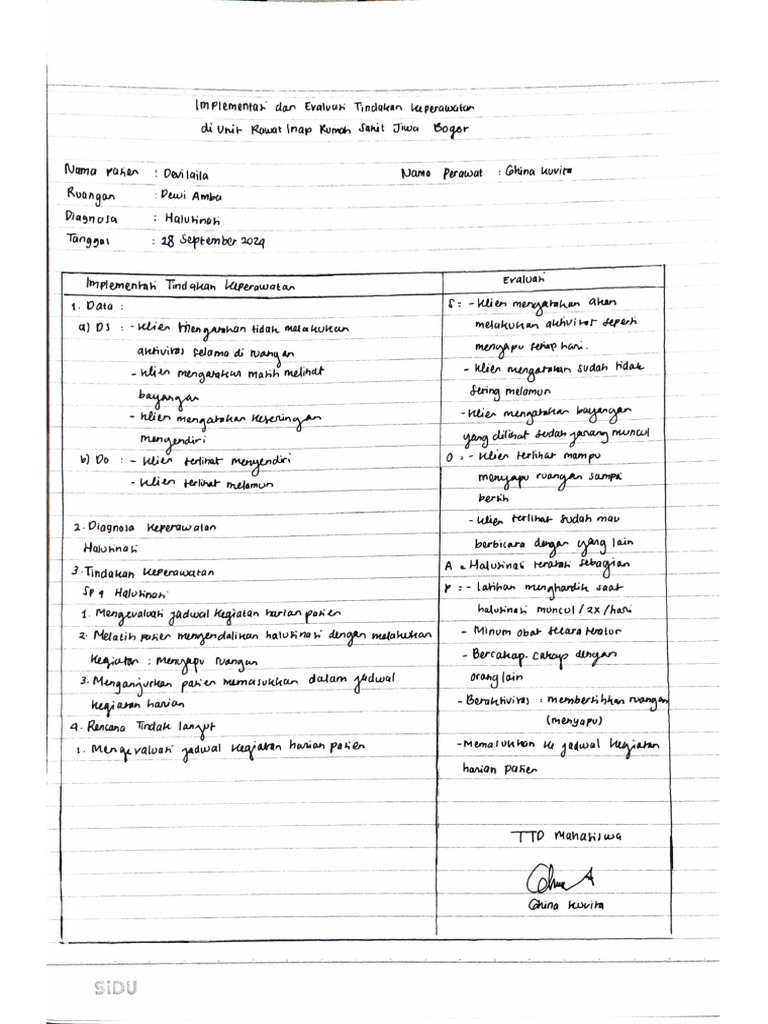 Implementasi dan Evaluasi Tindakan Keperawatan
di Unit Rawat Inap Rumah Sakit Jiwa Bogor
Nama pasien : Devi laila
Nama Perawat : Ghina kuvita
Ruangan : Dewi Amba
Diagnosa : Halusinasi
Tanggal : 28 September 2024
Implementasi Tindakan Keperawatan
1. Data :
a) DS : - Klien mengatakan tidak melakukan
aktivitas selama di ruangan
- Klien mengatakan masih melihat
bayangan
- Klien mengatakan keseringan
menyendiri
b) DO : - Klien terlihat menyendiri
- Klien terlihat melamun
2. Diagnosa Keperawatan
Halusinasi
3. Tindakan Keperawatan
SP 4 Halusinasi
1. Mengevaluasi jadwal kegiatan harian pasien
2. Melatih pasien mengendalikan halusinasi dengan melakukan
kegiatan : menyapu ruangan
3. Menganjurkan pasien memasukkan dalam jadwal
kegiatan harian
4. Rencana Tindak lanjut
1. Mengevaluasi jadwal kegiatan harian pasien
Evaluasi
S : - Klien mengatakan akan
melakukan aktivitas seperti
menyapu setiap hari.
- Klien mengatakan sudah tidak
sering melamun
- Klien mengatakan bayangan
yang dilihat sudah jarang muncul
O : - Klien terlihat mampu
menyapu ruangan sampai
bersih
- Klien terlihat sudah mau
berbicara dengan yang lain
A = Halusinasi teratasi sebagian
P : - latihan menghardik saat
halusinasi muncul / 2x / hari
- Minum obat secara teratur
- Bercakap-cakap dengan
orang lain
- Beraktivitas : membersihkan ruangan
(menyapu)
- Memasukkan ke jadwal kegiatan
harian pasien
TTD Mahasiswa
Ghina kuvita
SiDU